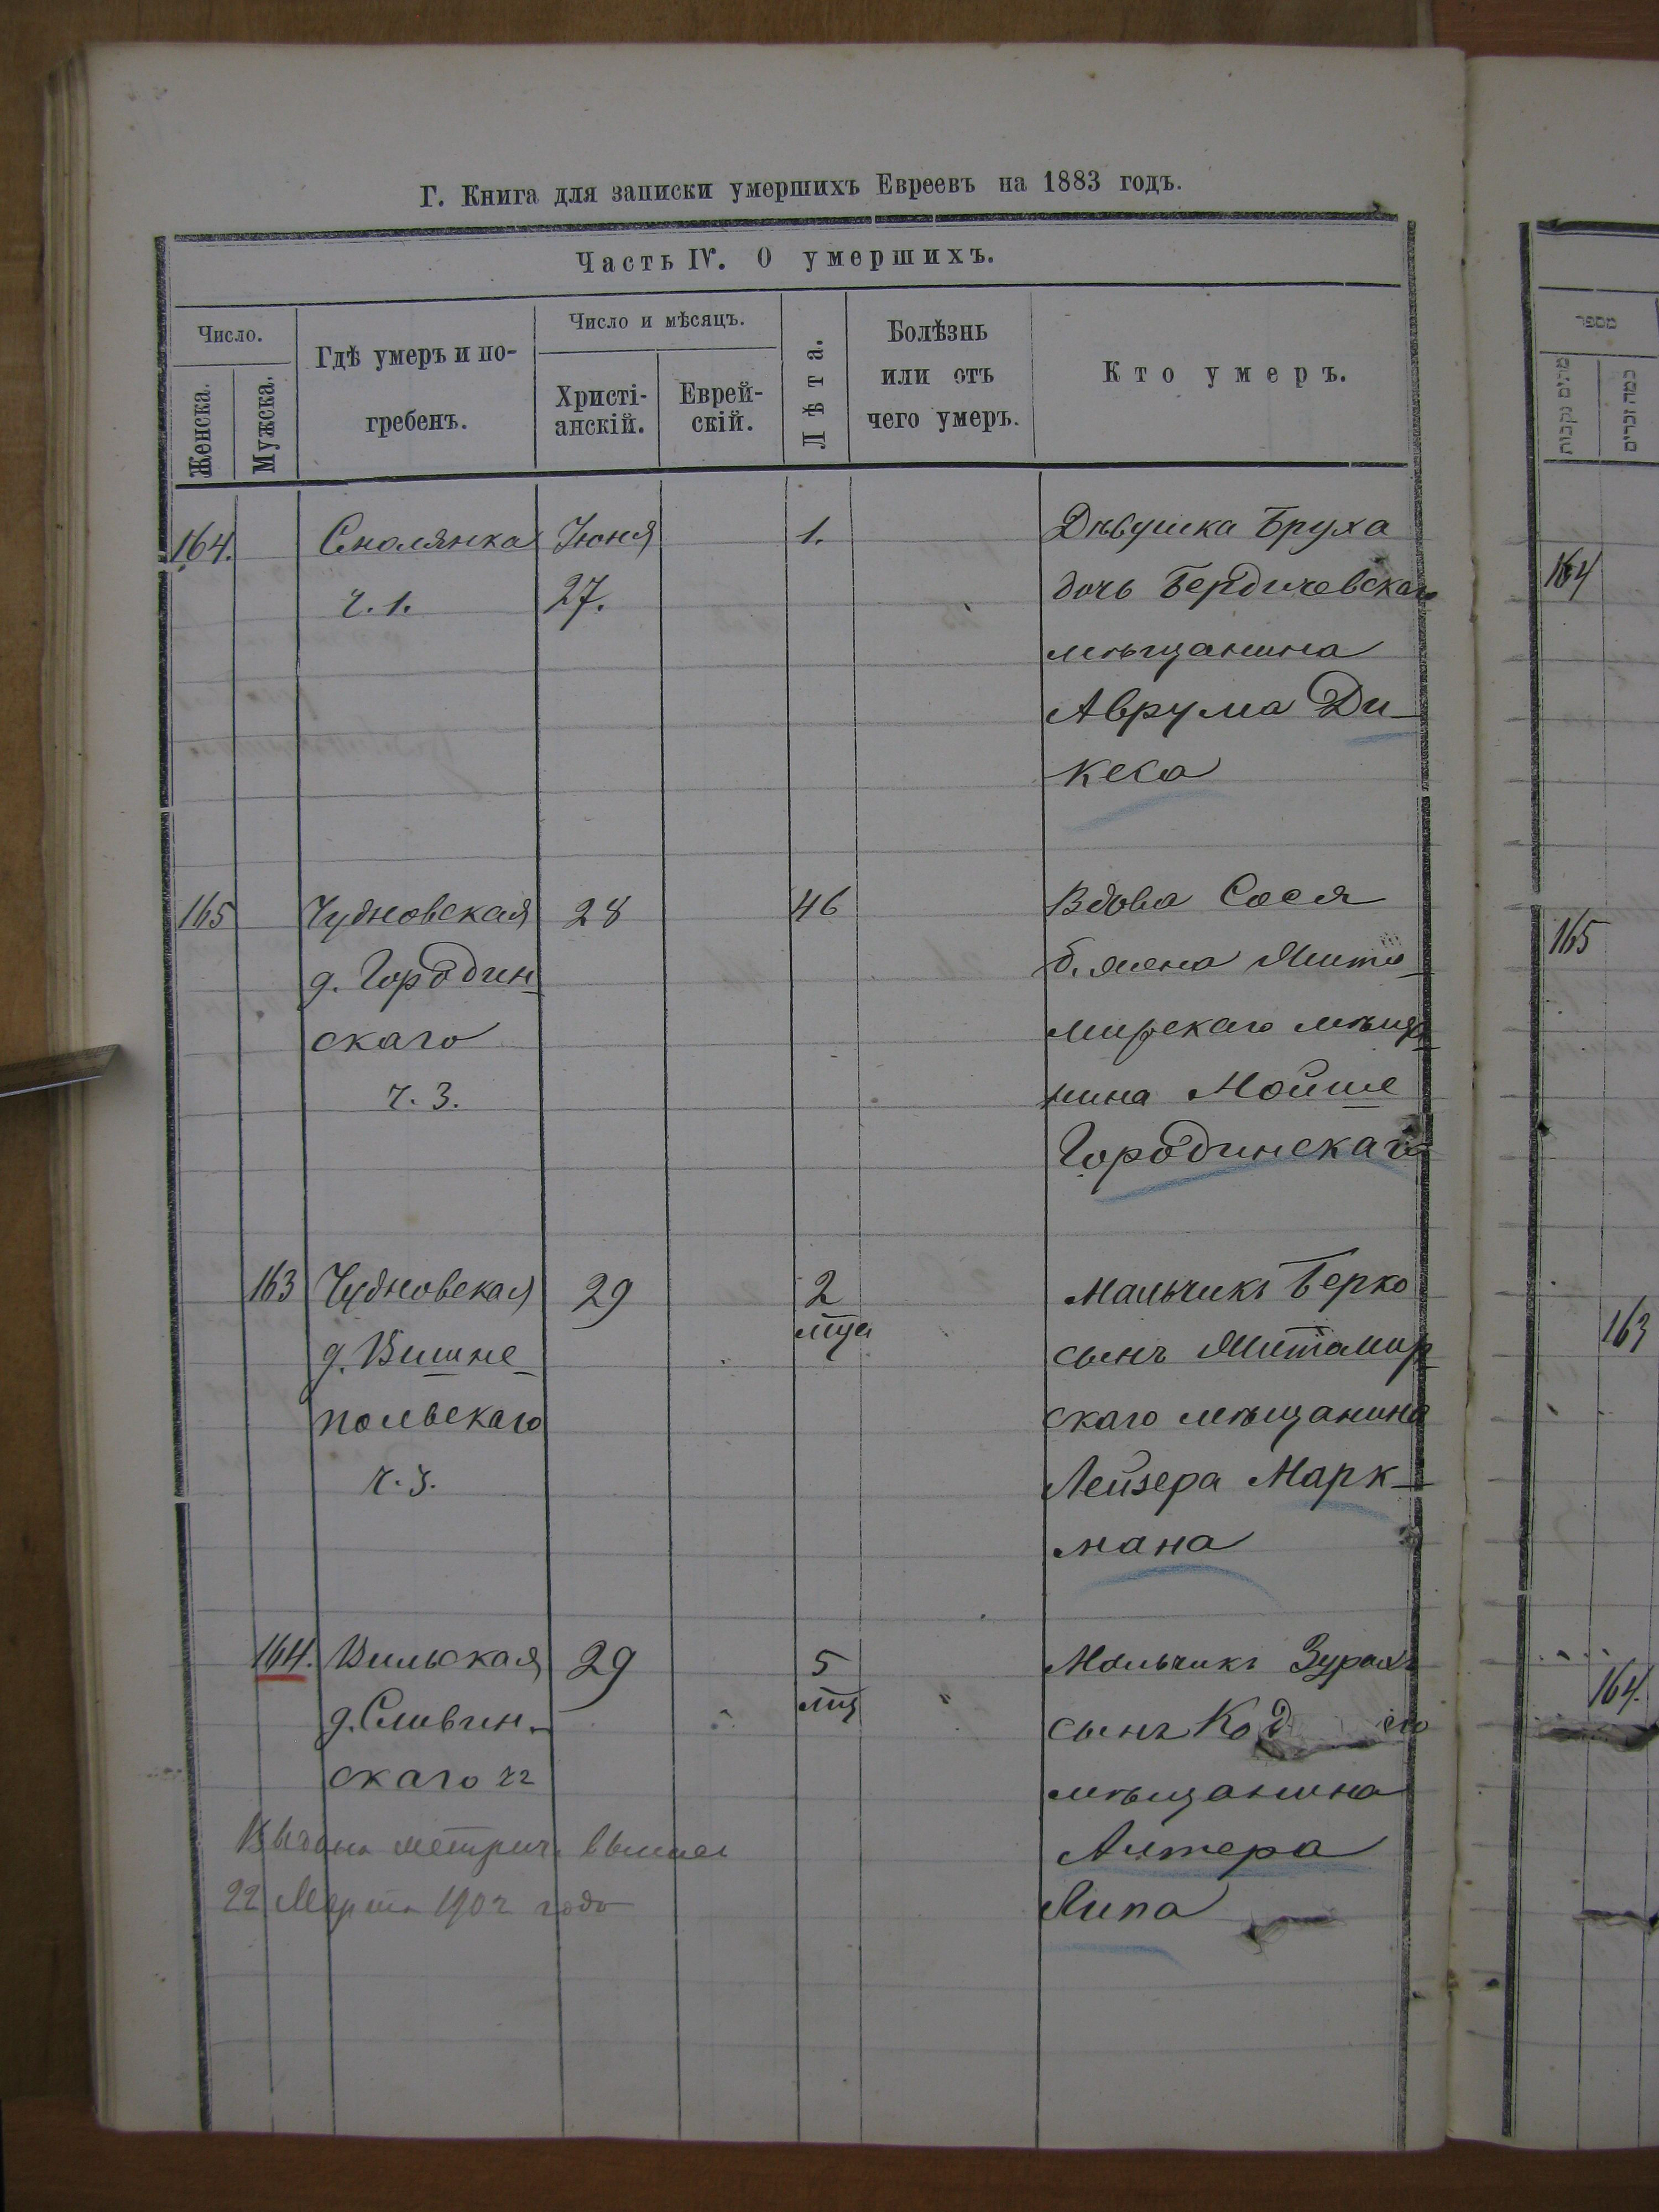 Г. Книга для записки умершихъ Евреевъ на 1883 годъ.
Часть IV. О умершихъ.
Число.
Женска.
Мужска.
Гдѣ умеръ и по-
гребенъ.
Число и мѣсяцъ.
Христі-
анскій.
Еврей-
скій.
Лѣта.
Болѣзнь
или отъ
чего умеръ.
Кто умеръ.
164.
Смолянка
ч. 1.
Июня
27.
1.
Дѣвушка Бруха
дочь Бердичевскаго
мѣщанина
Аврума Ди-
кеса
165
Чудновская
д. Городин-
скаго
ч. 3.
28
46
Вдова Сося
б. жена Жито-
мирскаго мѣща-
нина Мойше
Городинскаго
163
Чудновская
д. Вишне-
польскаго
ч. 3.
29
2
мца
Мальчикъ Берко
сынъ Житомир-
скаго мѣщанина
Лейзера Марк-
мана
164.
Вильская
д. Сливин-
скаго ч2
29
5
мц
Мальчикъ Зурахъ
сынъ Код го
мѣщанина
Алтера
Липа
Выдана метрич.
22 Марта 1902 года
מספר
מתים נקבות
כמה זכרים
164
165
163
164.